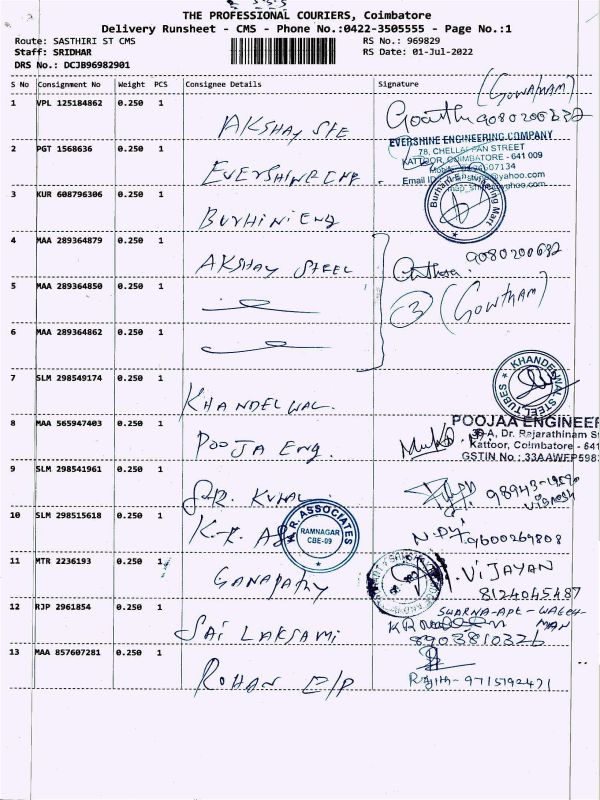 THE PROFESSIONAL COURIERS, Coimbatore
Delivery Runsheet - CMS - Phone No.:0422-3505555 - Page No.:1
Route: SASTHIRI ST CMS
RS No.: 969829
Staff: SRIDHAR
RS Date: 01-Jul-2022
DRS No.: DCJB96982901
S No Consignment No Weight PCS Consignee Details Signature
1 VPL 125184862 0.250 1 AKSHAY STE (GOWTHAM)
2 PGT 1568636 0.250 1 EVERSHINE
EVERSHINE ENGINEERING COMPANY
78, CHELLAPPAN STREET
KATTOOR, COIMBATORE - 641 009
3 KUR 608796306 0.250 1 BURHINI ENG
Burhani Engineering Mart
4 MAA 289364879 0.250 1 AKSHAY STEEL 9080200682
5 MAA 289364850 0.250 1
3 (GOWTHAM)
6 MAA 289364862 0.250 1
7 SLM 298549174 0.250 1 KHANDELWAL
KHANDELWAL STEEL TUBES
8 MAA 565947403 0.250 1 POOJA ENG
POOJAA ENGINEER
A, Dr. Rajarathinam S
Kattoor, Coimbatore - 641
GSTIN No : 33AAWFP598
9 SLM 298541961 0.250 1
10 SLM 298515618 0.250 1 K.R. AS
K.R. ASSOCIATES
RAMNAGAR
CBE-09
9600269808
11 MTR 2236193 0.250 1 GANAPATHY
VIJAYAN
8124045487
12 RJP 2961854 0.250 1 SAI LAKSAMI
8903810326
13 MAA 857607281 0.250 1 ROHAN E/P
9715192471